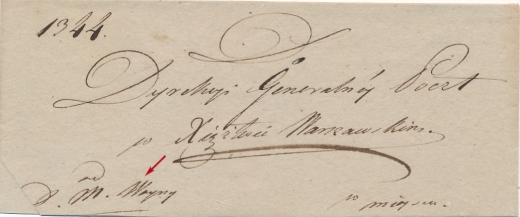 1344.
Dyrekcyi Generalnéy Poczt
w Xięstwie Warszawskim.
od
D. M. Woyny
w mieyscu.